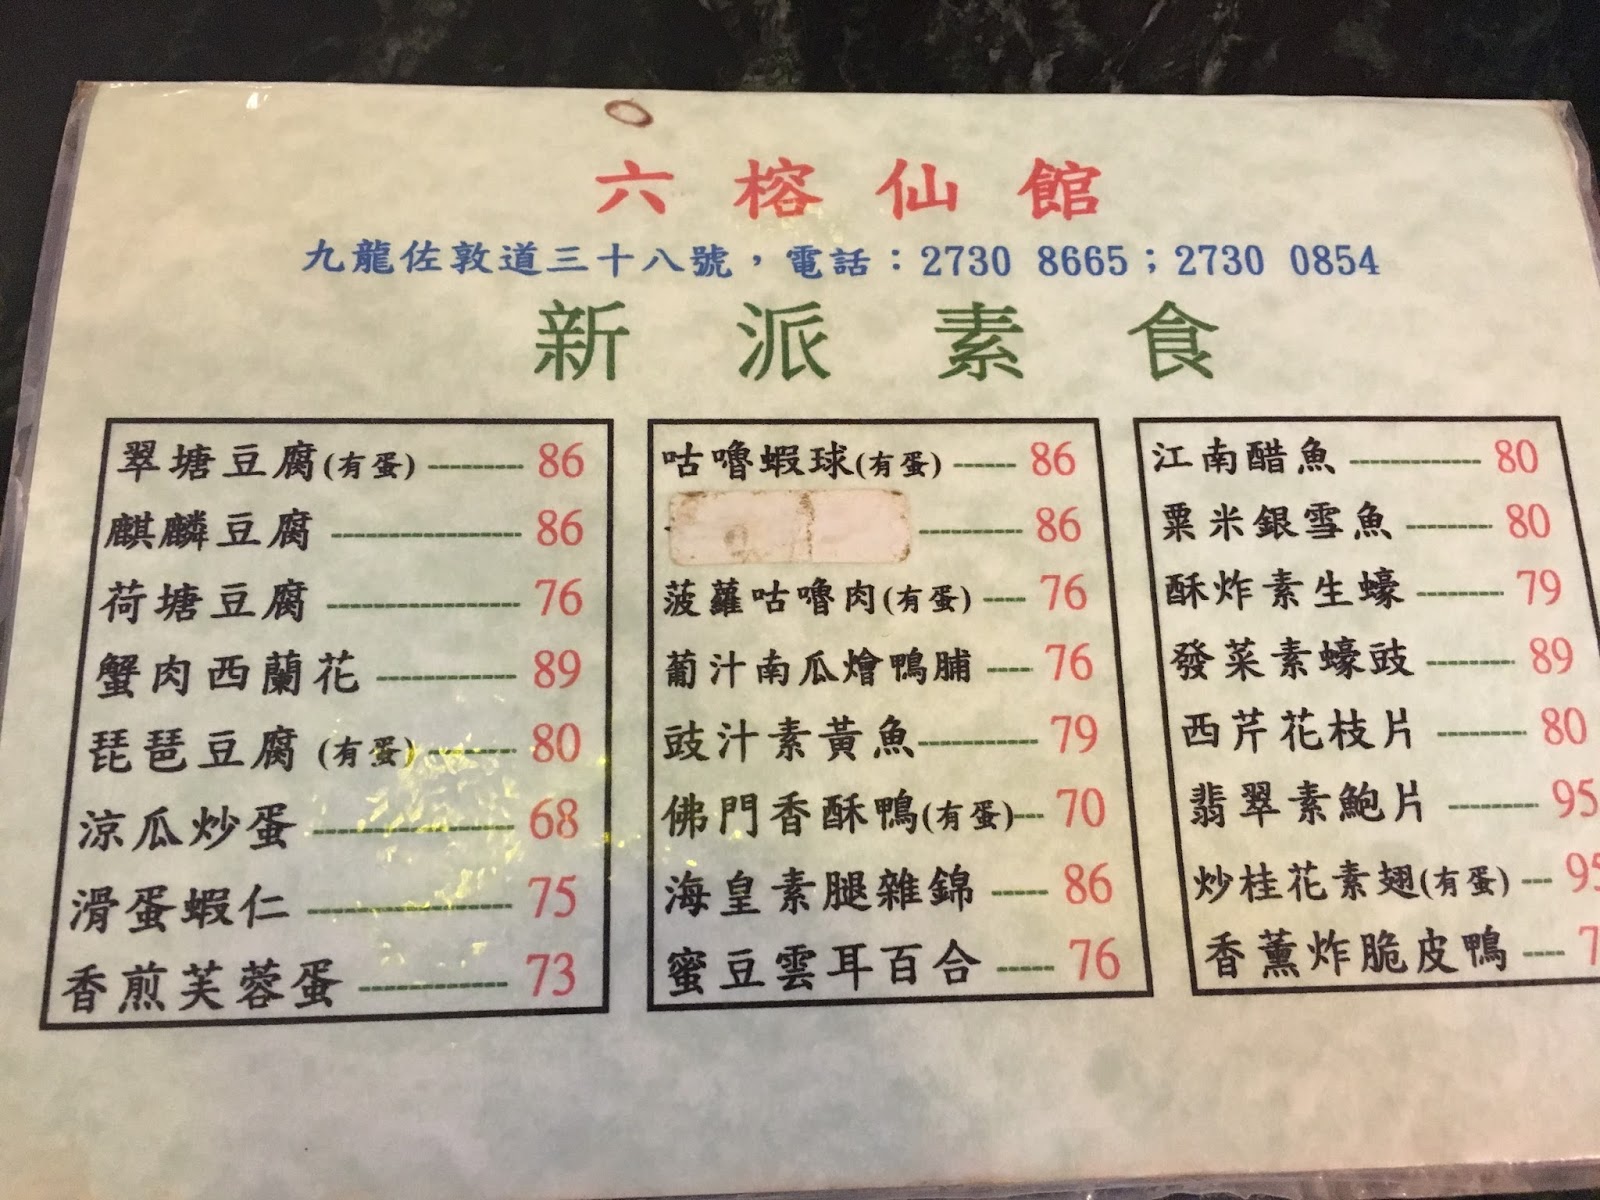 六榕仙館
九龍佐敦道三十八號，電話：2730 8665；2730 0854
新派素食
翠塘豆腐(有蛋) -------- 86
麒麟豆腐 -------- 86
荷塘豆腐 -------- 76
蟹肉西蘭花 -------- 89
琵琶豆腐 (有蛋) -------- 80
涼瓜炒蛋 -------- 68
滑蛋蝦仁 -------- 75
香煎芙蓉蛋 -------- 73
咕嚕蝦球(有蛋) ----- 86
-------- 86
菠蘿咕嚕肉(有蛋) ---- 76
葡汁南瓜燴鴨脯 ---- 76
豉汁素黃魚-------- 79
佛門香酥鴨(有蛋)--- 70
海皇素腿雜錦 ----- 86
蜜豆雲耳百合 ----- 76
江南醋魚 -------- 80
粟米銀雪魚 -------- 80
酥炸素生蠔 -------- 79
發菜素蠔豉 -------- 89
西芹花枝片 -------- 80
翡翠素鮑片 -------- 95
炒桂花素翅(有蛋) --- 95
香薰炸脆皮鴨 ---- 7